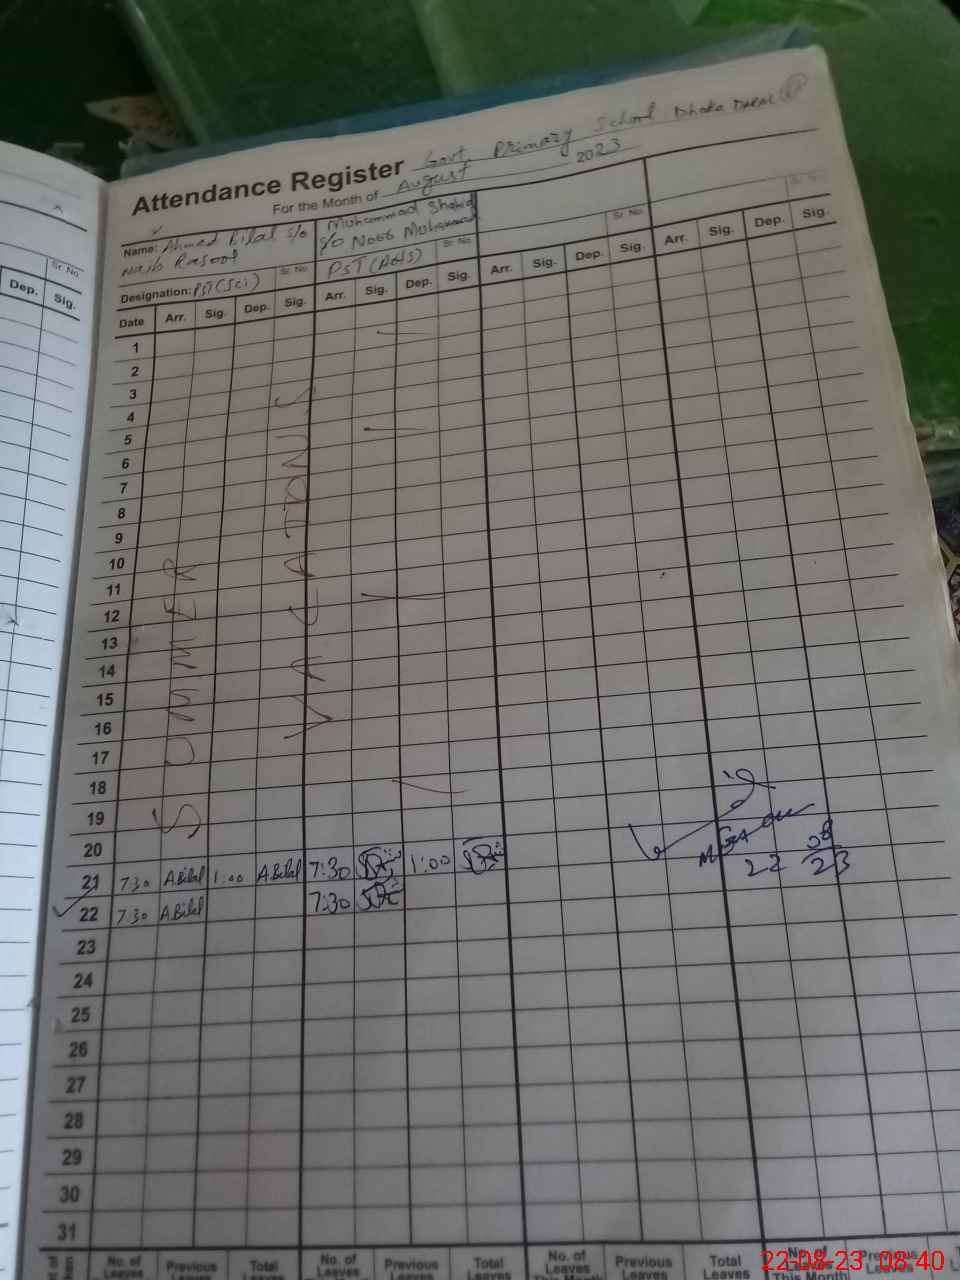 Attendance Register Govt. Primary School Dhoke
For the Month of August 2023
Name: Ahmed Bilal S/o
Sr. No.
Designation: PST (Sci)
Muhammad Shahid
S/O Muhammad
Sr. No.
PST (Arts)
Sr. No.
Sr. No.
Dep. Sig.
Date Arr. Sig. Dep. Sig. Arr. Sig. Dep. Sig. Arr. Sig. Dep. Sig. Arr. Sig. Dep. Sig.
1
2
3
4
5
6
7
8
9
10
11
12
13
14
15
16
17
18
19
20
SUMMER
VACATIONS
21 7:30 A.Bilal 1:00 A.Bilal 7:30 1:00
22 7:30 A.Bilal 7:30
22 08
23
23
24
25
26
27
28
29
30
31
No. of Leaves Previous Leaves Total Leaves No. of Leaves Previous Leaves Total Leaves No. of Leaves This Month Previous Leaves Total Leaves No. of Leaves This Month Previous Leaves
22-08-23 08:40